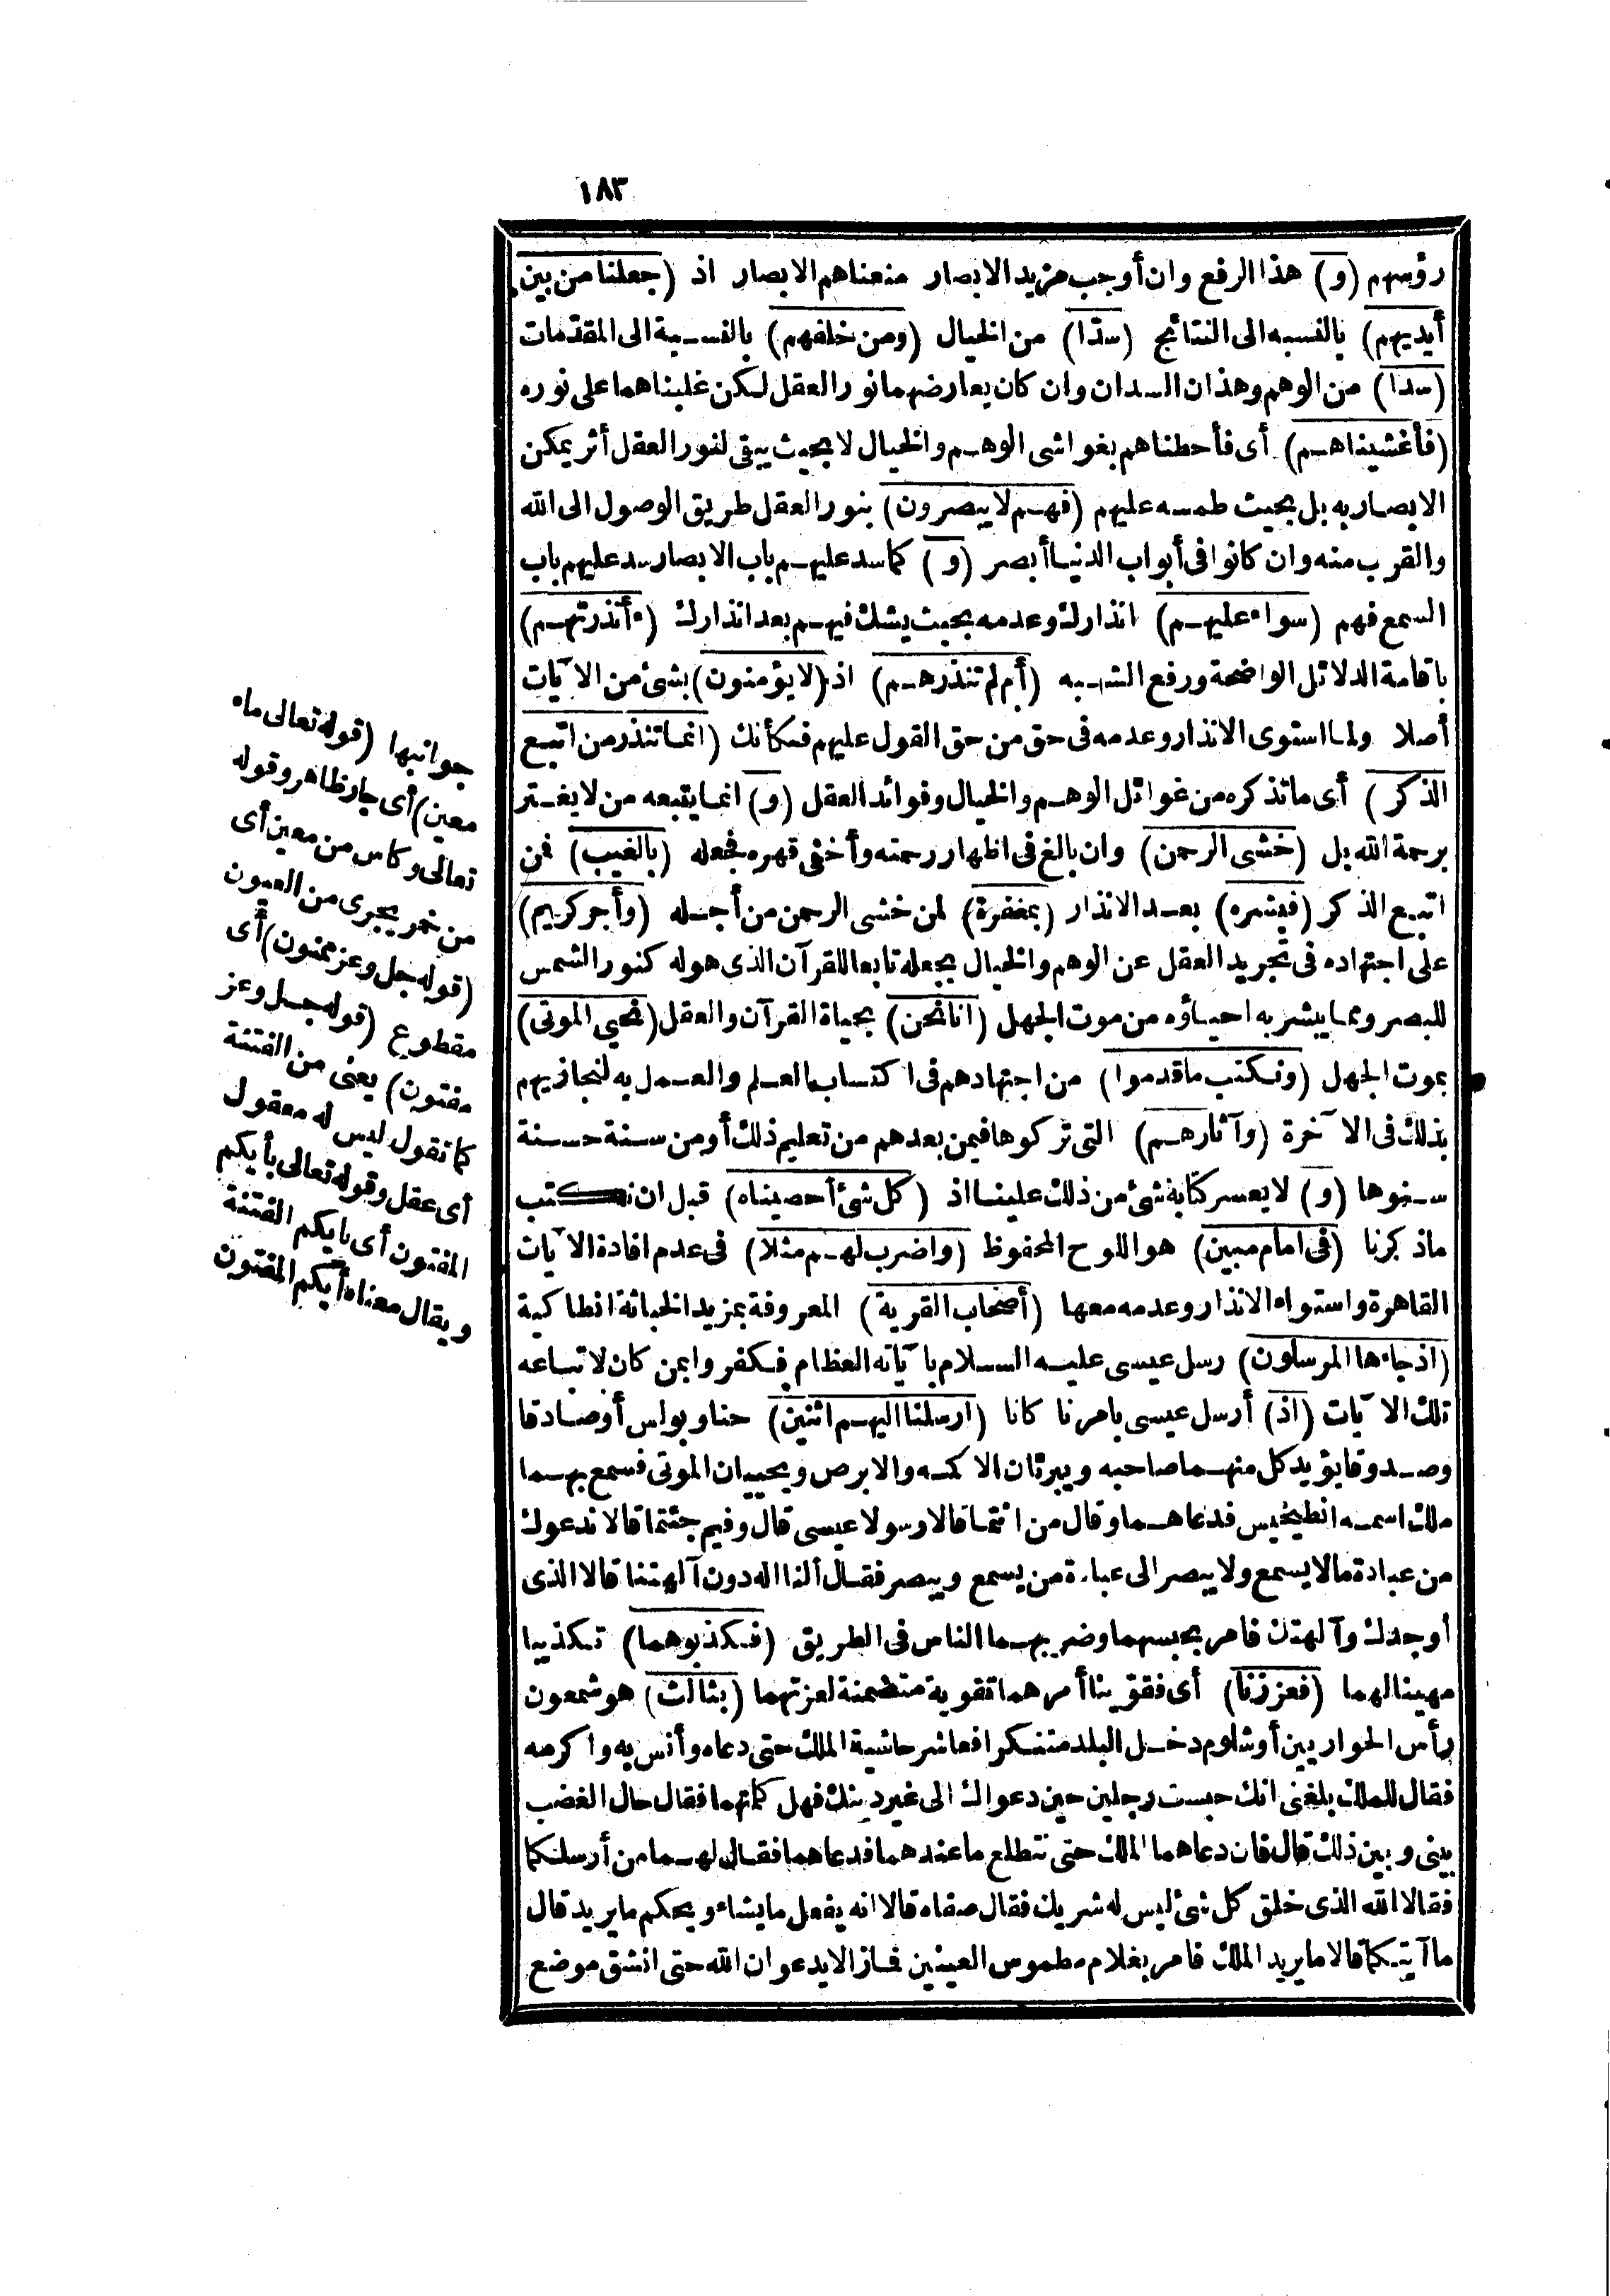 ١٨٣
رؤسهم (و) هذا الرفع وان أوجب مزيد الابصار منعناهم الابصار اذ (جعلنا من بين
أيديهم) بالنسبه الى النتائج (سدّا) من الخيال (ومن خلفهم) بالنسبة الى المقدّمات
(سدا) من الوهم وهذان السدان وان كان يعارضهما نور العقل لكن غلبناهما على نوره
(فأغشيناهم) أى فأحطناهم بغواشى الوهم والخيال لا بحيث يبقى لنور العقل أثر يمكن
الابصار به بل بحيث طمسه عليهم (فهم لا يبصرون) بنور العقل طريق الوصول الى الله
والقرب منه وان كانوا فى أبواب الدنيا أبصر (و) كما سد عليهم باب الابصار سد عليهم باب
السمع فهم (سواء عليهم) انذارك وعدمه بحيث يشك فيهم بعد انذارك (ءأنذرتهم)
باقامة الدلائل الواضحة ورفع الشبه (أم لم تنذرهم) اذ (لا يؤمنون) بشئ من الآيات
أصلا ولما استوى الانذار وعدمه فى حق من حق القول عليهم فكأنك (انما تنذر من اتبع
الذكر) أى ما تذكره من غوائل الوهم والخيال وفوائد العقل (و) انما يتبعه من لا يغتر
برحمة الله بل (خشى الرحمن) وان بالغ فى اظهار رحمته وأخفى قهره فجعله (بالغيب) فمن
اتبع الذكر (فبشره) بعد الانذار (بمغفرة) لمن خشى الرحمن من أجله (وأجر كريم)
على اجتهاده فى تجريد العقل عن الوهم والخيال بجعله تابعا للقرآن الذى هو له كنور الشمس
للبصر ومما يبشر به احياؤه من موت الجهل (انا نحن) بحياة القرآن والعقل (نحيي الموتى)
بموت الجهل (ونكتب ما قدموا) من اجتهادهم فى اكتساب العلم والعمل به لنجازيهم
بذلك فى الآخرة (وآثارهم) التى تركوها فيمن بعدهم من تعليم ذلك أو من سنة حسنة
سنوها (و) لا يعسر كتابة شئ من ذلك علينا اذ (كل شئ أحصيناه) قبل ان نكتب
ما ذكرنا (فى امام مبين) هو اللوح المحفوظ (واضرب لهم مثلا) فى عدم افادة الآيات
القاهرة واستواء الانذار وعدمه معها (أصحاب القرية) المعروفة بمزيد الخباثة انطاكية
(اذ جاءها المرسلون) رسل عيسى عليه السلام بآياته العظام فكفروا بمن كان لاتباعه
تلك الآيات (اذ) أرسل عيسى بامرنا كانا (ارسلنا اليهم اثنين) حنا وبولس أو صادقا
وصدوقا يؤيد كل منهما صاحبه ويبرئان الاكمه والابرص ويحييان الموتى فسمع بهما
ملك اسمه انطيخيس فدعاهما وقال من انتما قالا رسولا عيسى قال وفيم جئتما قالا ندعوك
من عبادة ما لا يسمع ولا يبصر الى عبادة من يسمع ويبصر فقال ألنا اله دون آلهتنا قالا الذى
أوجدك وآلهتك فامر بحبسهما وضربهما الناس فى الطريق (فكذبوهما) تكذيبا
مهينا لهما (فعززنا) أى فقوّينا أمرهما تقوية متضمنة لعزتهما (بثالث) هو شمعون
رأس الحواريين أو شلوم دخل البلد متنكرا فعاشر حاشية الملك حتى دعاه وأنس به واكرمه
فقال للملك بلغنى انك حبست رجلين حين دعواك الى غير دينك فهل كلمتهما فقال حال الغضب
بينى وبين ذلك قال فان دعاهما الملك حتى نتطلع ما عندهما فدعاهما فقال لهما من أرسلكما
فقالا الله الذى خلق كل شئ ليس له شريك فقال صفاه قالا انه يفعل ما يشاء ويحكم ما يريد قال
ما آيتكما قالا ما يريد الملك فامر بغلام مطموس العينين فما زالا يدعوان الله حتى انشق موضع
جوانبها (قوله تعالى ماء
معين) أى جار ظاهر وقوله
تعالى وكاس من معين أى
من خمر يجرى من العيون
(قوله جل وعز ممنون) أى
مقطوع (قوله جل وعز
مفتون) يعنى من الفتنة
كما تقول ليس له معقول
أى عقل وقوله تعالى بأيكم
المفتون أى بايكم الفتنة
ويقال معناه أيكم المفتون